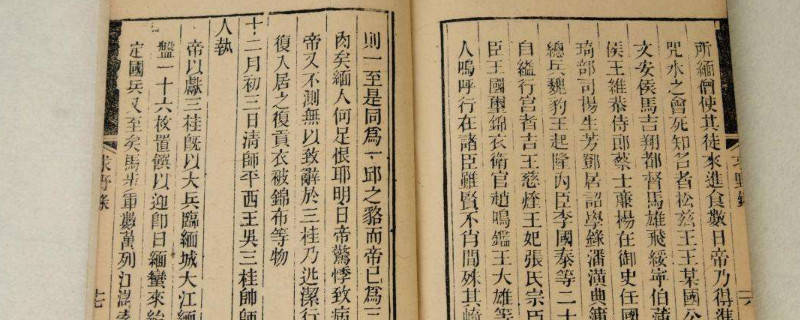 所緬僧使其徒來進食數日帝乃得進
咒水之會死知名者松玆王王某國公
文安侯馬吉翔都督馬雄飛綏寧伯蒲
侯王維恭侍郎蔡士蕭楊在御史任國
琦部司楊生芳鄧居詔學錄潘璜典
總兵魏豹王起隆內臣李國泰等二十
自縊行宮者吉王慈煃王妃張氏宗臣
臣王國璽錦衣衛官趙鳴鑑王大雄等
人嗚呼行在諸臣雖賢不肖間殊其
則一至是同為一邱之貉而帝已為三
肉矣緬人何足恨耶明日帝驚悸致病
帝又不測無以致辭於三桂乃潔行
復入居之復貢衣被錦布等物
十二月初三日清師平西王吳三桂師師
人執
帝以獻三桂旣以大兵臨緬城大江緬
盤一十六枚置饌以迎卽日緬蠻來給
定國兵又至矣馬步軍數萬列江滸
求野錄
十七